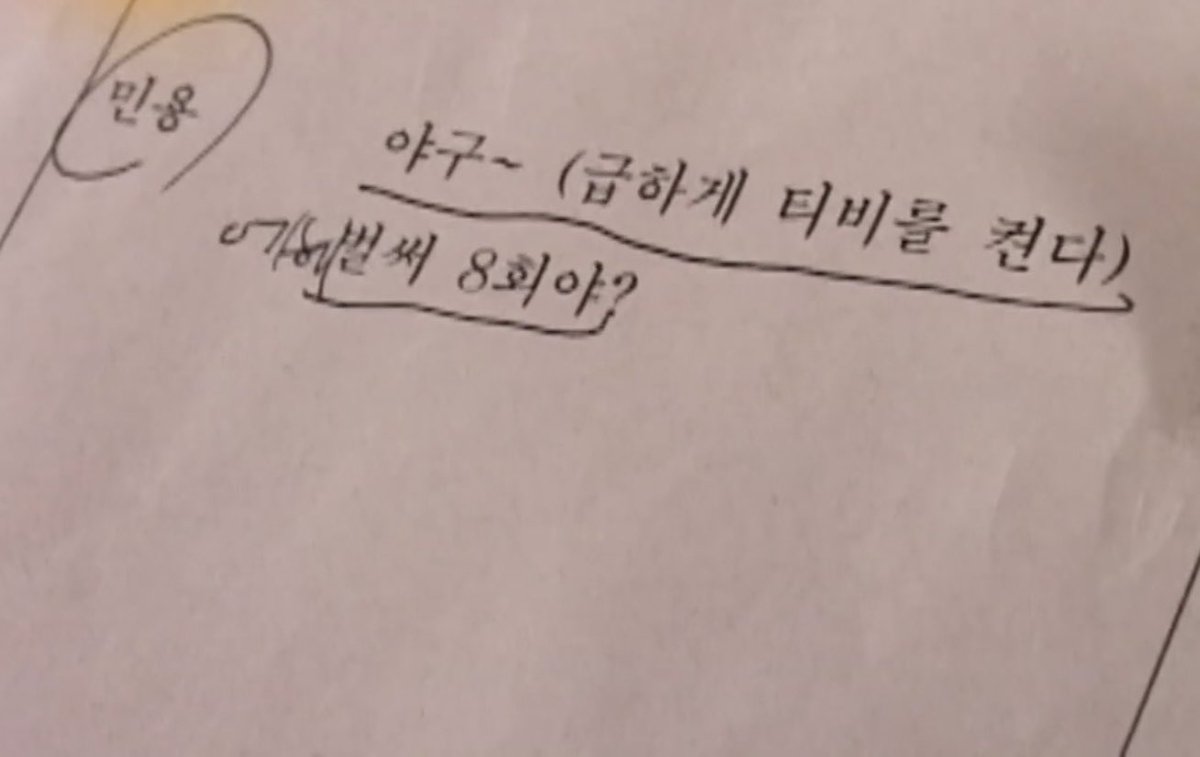 민용
야구~ (급하게 티비를 켠다)
벌써 8회야?